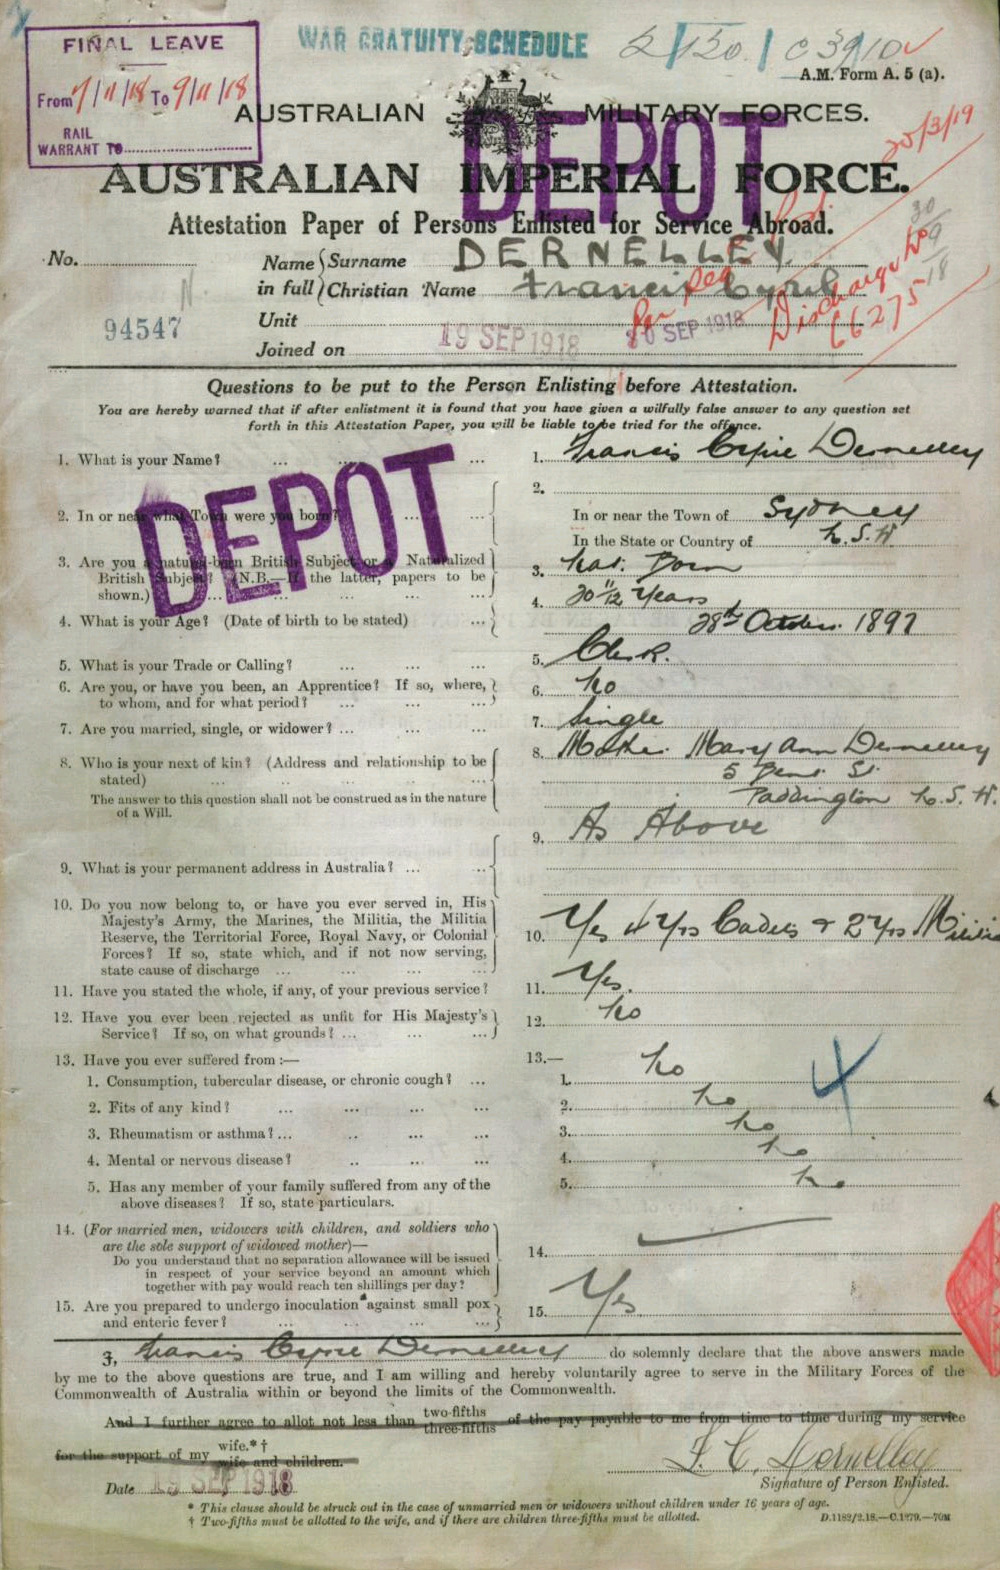 FINAL LEAVE
From 7/11/18 To 9/11/18
RAIL
WARRANT TO
WAR GRATUITY SCHEDULE
2/130/ C39/10
A.M. Form A. 5 (a).
AUSTRALIAN MILITARY FORCES.
DEPOT
20/3/19
AUSTRALIAN IMPERIAL FORCE.
Attestation Paper of Persons Enlisted for Service Abroad.
No.
94547
Name in full
Surname DERNELLEY.
Christian Name Francis Cyril
Unit
Joined on 19 SEP 1918
SEP 1918
Discharge No
66275
30/9/18
Questions to be put to the Person Enlisting before Attestation.
You are hereby warned that if after enlistment it is found that you have given a wilfully false answer to any question set
forth in this Attestation Paper, you will be liable to be tried for the offence.
DEPOT
1. What is your Name? ... ... ...
1. Francis Cyril Dernelley
2. In or near what Town were you born? ... ...
2.
In or near the Town of Sydney
In the State or Country of N.S.W.
3. Are you a natural-born British Subject or a Naturalized
British Subject? (N.B.—If the latter, papers to be
shown.) ... ... ... ...
3. Nat. Born
4. What is your Age? (Date of birth to be stated) ...
4. 20 11/12 Years
28th October 1897
5. What is your Trade or Calling? ... ... ...
5. Clerk.
6. Are you, or have you been, an Apprentice? If so, where,
to whom, and for what period? ... ... ...
6. No
7. Are you married, single, or widower? ... ... ...
7. Single
8. Who is your next of kin? (Address and relationship to be
stated) ... ... ... ...
The answer to this question shall not be construed as in the nature
of a Will.
8. Mother Mary Ann Dernelley
5 St.
Paddington N.S.W.
9. What is your permanent address in Australia? ... ...
9. As Above
10. Do you now belong to, or have you ever served in, His
Majesty's Army, the Marines, the Militia, the Militia
Reserve, the Territorial Force, Royal Navy, or Colonial
Forces? If so, state which, and if not now serving,
state cause of discharge ... ... ... ...
10. Yes 4 Yrs Cadets & 2 Yrs Militia
11. Have you stated the whole, if any, of your previous service?
11. Yes.
12. Have you ever been rejected as unfit for His Majesty's
Service? If so, on what grounds? ... ... ...
12. No
13. Have you ever suffered from :—
13.—
1. Consumption, tubercular disease, or chronic cough? ...
1. No
2. Fits of any kind? ... ... ... ...
2. No
3. Rheumatism or asthma? ... ... ... ...
3. No
4. Mental or nervous disease? ... ... ...
4. No
5. Has any member of your family suffered from any of the
above diseases? If so, state particulars.
5. No
4
14. (For married men, widowers with children, and soldiers who
are the sole support of widowed mother)—
Do you understand that no separation allowance will be issued
in respect of your service beyond an amount which
together with pay would reach ten shillings per day?
14.
15. Are you prepared to undergo inoculation against small pox
and enteric fever? ... ... ...
15. Yes
I, Francis Cyril Dernelley do solemnly declare that the above answers made
by me to the above questions are true, and I am willing and hereby voluntarily agree to serve in the Military Forces of the
Commonwealth of Australia within or beyond the limits of the Commonwealth.
And I further agree to allot not less than two-fifths three-fifths of the pay payable to me from time to time during my service
for the support of my wife.*† wife and children.
F. C. Dernelley
Signature of Person Enlisted.
Date 19 SEP 1918
* This clause should be struck out in the case of unmarried men or widowers without children under 16 years of age.
† Two-fifths must be allotted to the wife, and if there are children three-fifths must be allotted.
D.1182/2.18.—C.1979.—70M